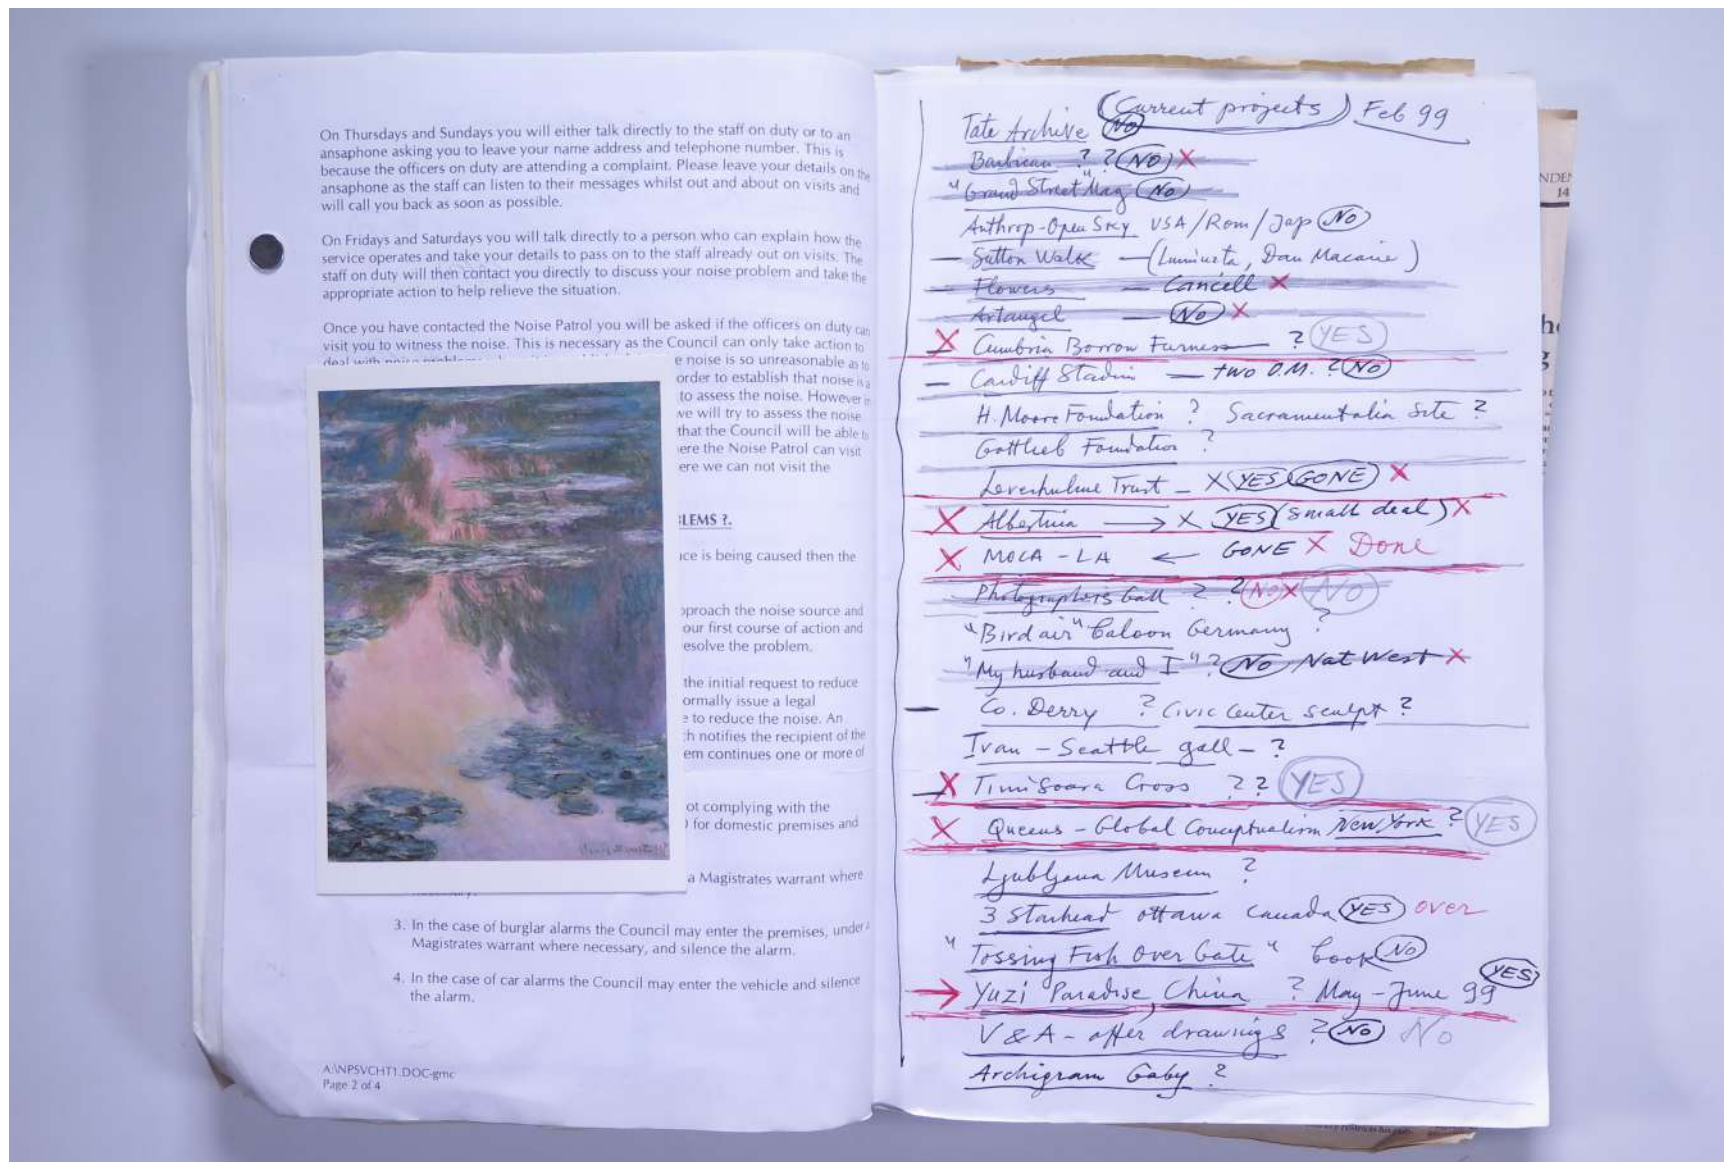 On Thursdays and Sundays you will either talk directly to the staff on duty or to an
ansaphone asking you to leave your name address and telephone number. This is
because the officers on duty are attending a complaint. Please leave your details on the
ansaphone as the staff can listen to their messages whilst out and about on visits and
will call you back as soon as possible.
On Fridays and Saturdays you will talk directly to a person who can explain how the
service operates and take your details to pass on to the staff already out on visits. The
staff on duty will then contact you directly to discuss your noise problem and take the
appropriate action to help relieve the situation.
Once you have contacted the Noise Patrol you will be asked if the officers on duty can
visit you to witness the noise. This is necessary as the Council can only take action to
deal with noise e noise is so unreasonable as to
order to establish that noise is a
to assess the noise. However in
we will try to assess the noise
that the Council will be able to
ere the Noise Patrol can visit
ere we can not visit the
LEMS ?.
ce is being caused then the
proach the noise source and
our first course of action and
esolve the problem.
the initial request to reduce
ormally issue a legal
e to reduce the noise. An
h notifies the recipient of the
em continues one or more of
ot complying with the
for domestic premises and
a Magistrates warrant where
3. In the case of burglar alarms the Council may enter the premises, under a
Magistrates warrant where necessary, and silence the alarm.
4. In the case of car alarms the Council may enter the vehicle and silence
the alarm.
A:\NPSVCHT1.DOC-gmc
Page 2 of 4
(Current projects) Feb 99
Tate Archive No
Barbican ? ? (NO) X
"Grand Street" Mag (No)
Anthrop-Open Sky USA/Rom/Jap (No)
— Sutton Walk — (Luminita, Dan Macarie)
— Flowers — Cancell X
— Artangel — (No) X
X Cumbria Borrow Furness ? (YES)
— Cardiff Stadium — two O.M. ? (No)
H. Moore Foundation ? Sacramentalia Site ?
Gottlieb Foundation ?
Leverhulme Trust — X (YES) (GONE) X
X Albertina → X (YES) (small deal) X
X MOCA - LA ← GONE X Done
Photographers Gall ? ? (No) X (No)
"Bird air" baloon Germany ?
"My husband and I" ? (No) Nat West X
— Co. Derry ? Civic Center sculpt ?
Ivan - Seattle gall - ?
X Timisoara Cross ?? (YES)
X Queens - Global Conceptualism New York ? (YES)
Ljubljana Museum ?
3 Starhead Ottawa Canada (YES) over
"Tossing Fish Over Gate" book (No)
→ Yuzi Paradise, China ? May - June 99 (YES)
V & A - offer drawings ? (No) No
Archigram Gaby ?
NDEN
14